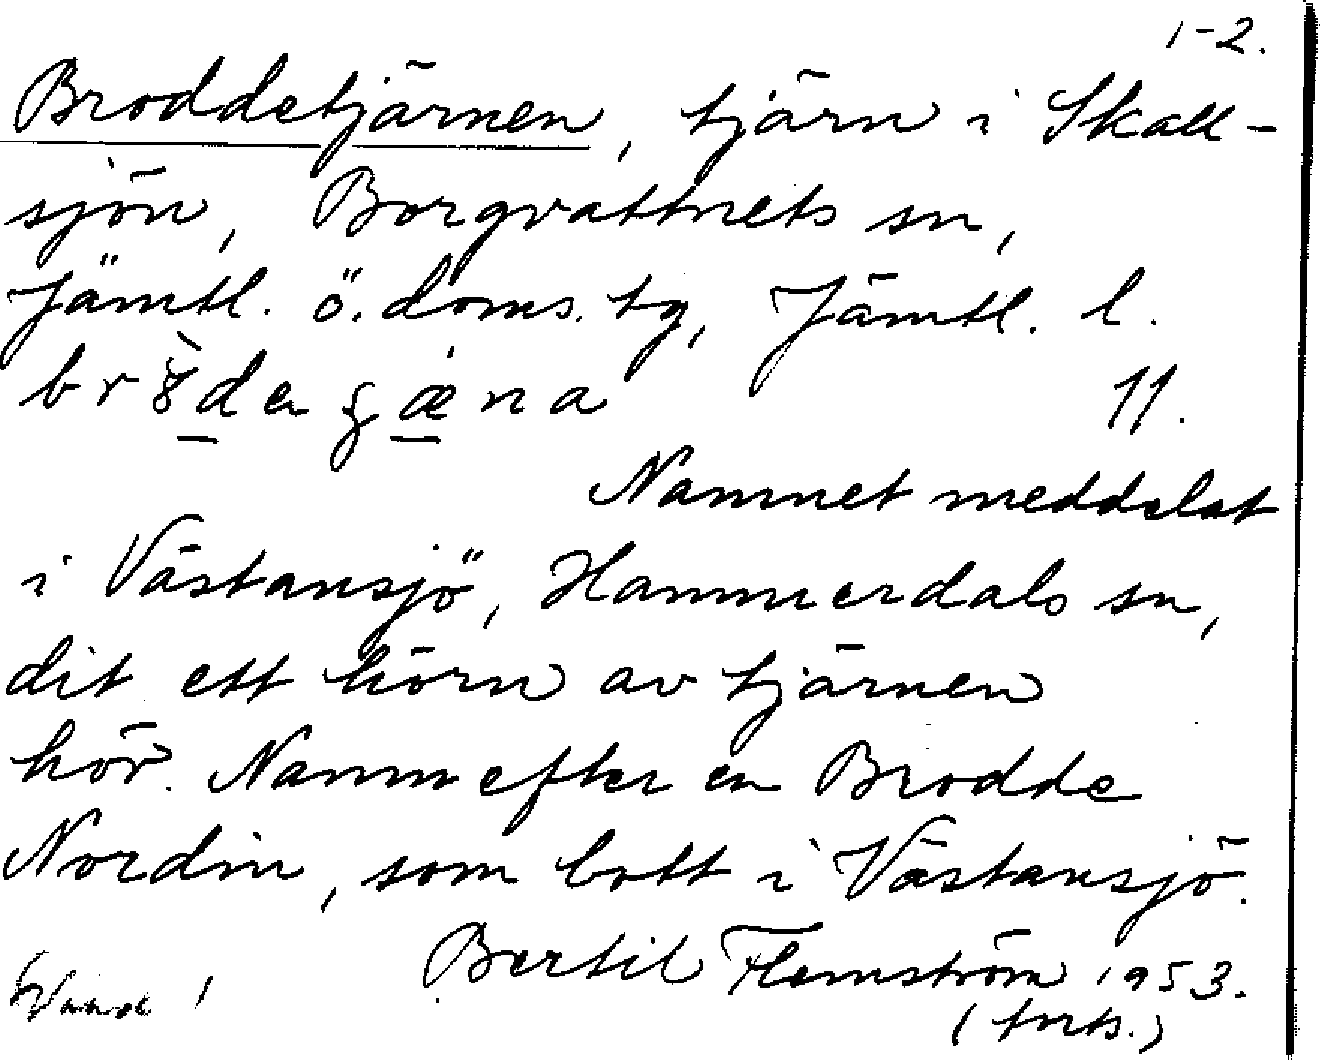 1-2.
Broddetjärnen, tjärn i Skall-
sjön, Borgvattnets sn,
Jämtl. ö. doms. tg, Jämtl. l.
11.
Namnet meddelat
i Västansjö, Hammerdals sn,
dit ett hörn av tjärnen
hör. Namn efter en Brodde
Nordin, som bott i Västansjö.
Bertil Flemström 1953.
Vänd!
(forts.)